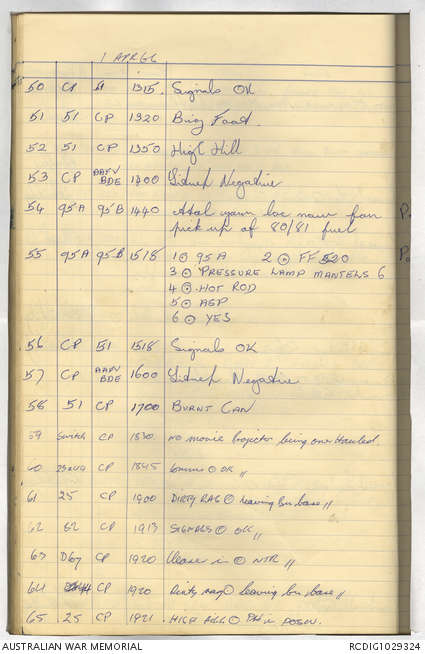 1 APR 66
50 CP A 1315. Signals OK
51 51 CP 1320 Brig Foot.
52 51 CP 1350 High Hill
53 CP AAFV BDE 1400 Sitrep Negative
54 95A 95B 1440 loc now for
pick up of 80/81 fuel
55 95A 95B 1515 1⊙ 95A 2⊙ FF 520
3⊙ PRESSURE LAMP MANTELS 6
4⊙ HOT ROD
5⊙ ASP
6⊙ YES
56 CP 51 1515 Signals OK
57 CP AAFV BDE 1600 Sitrep Negative
58 51 CP 1700 BURNT CAN
59 Switch CP 1830 no movie Projector being over Hauled.
60 CP 1845 ⊙ OK //
61 25 CP 1900 DIRTY RAG ⊙ leaving for base //
62 62 CP 1913 SIGNALS ⊙ OK //
63 D67 CP 1920 in ⊙ NTR //
64 CP 1920 Dirty rag ⊙ leaving for base //
65 25 CP 1921. HIGH HILL ⊙ in POSN.
AUSTRALIAN WAR MEMORIAL
RCDIG1029324